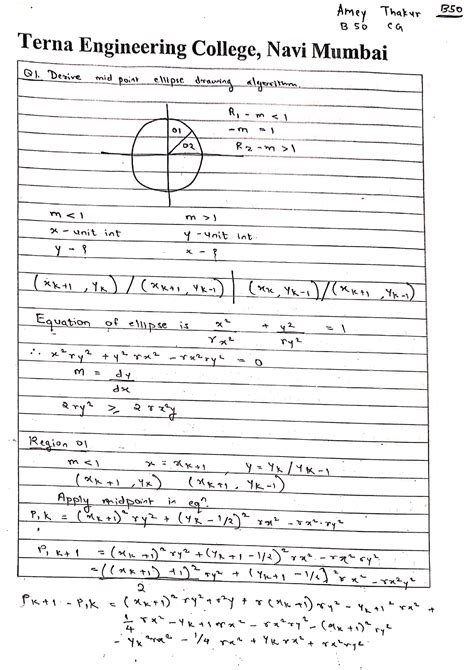 Amey Thakur B50
B 50 CG
Terna Engineering College, Navi Mumbai
Q1. Derive mid point ellipse drawing algorithm.
R1 - m < 1
01 - m = 1
02 R2 - m > 1
m < 1 m > 1
x - unit int y - unit int.
y - ? x - ?
(xk+1, yk) / (xk+1, yk-1) | (xk, yk-1) / (xk+1, yk-1)
Equation of ellipse is x²/rx² + y²/ry² = 1
∴ x²ry² + y²rx² - rx²ry² = 0
m = dy/dx
2ry² ≥ 2rx²y
Region 01
m < 1 x = xk+1, y = yk / yk-1
(xk+1, yk) (xk+1, yk-1)
Apply midpoint in eqⁿ
P1k = (xk+1)² ry² + (yk - 1/2)² rx² - rx².ry²
P1k+1 = (xk+1)² ry² + (yk+1 - 1/2)² rx² - rx² ry²
= ((xk+1) + 1)² ry² + (yk+1 - 1/2)² rx² - rx²y²
2
Pk+1 - P1k = (xk+1)² ry² + r²y + r(xk+1) ry² - yk+1² rx² +
1/4 rx² - yk+1 rx² - rx²ry² - (xk+1)² ry²
- yk²rx² - 1/4 rx² + yk rx² + rx²ry²